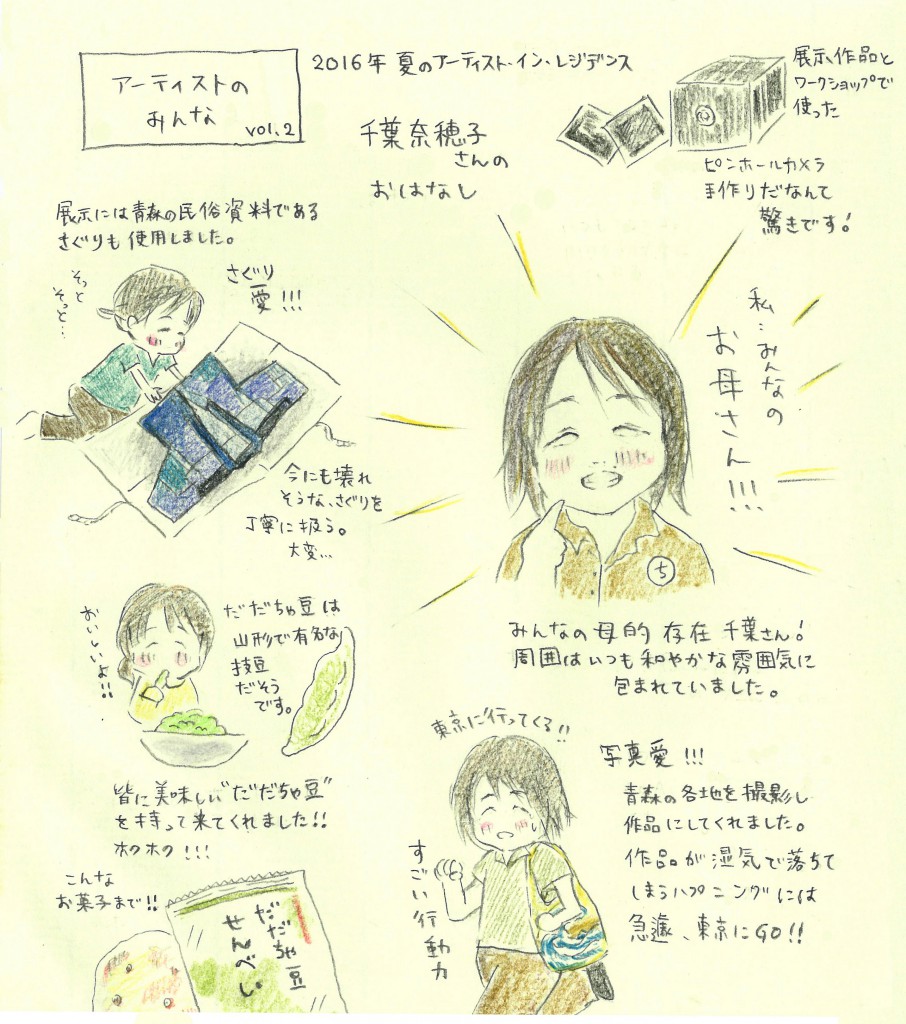 アーティストの
みんな
vol.2
2016年 夏のアーティスト・イン・レジデンス
千葉奈穂子
さんの
おはなし
展示、作品と
ワークショップで
使った
ピンホールカメラ
手作りだなんて
驚きです!
展示には青森の民俗資料である
さぐりも使用しました。
そっと
そっと…
さぐり
愛!!!
今にも壊れ
そうな、さぐりを
丁寧に扱う。
大変…
私…みんなの
お母さん!!!
ち
みんなの母的存在 千葉さん!
周囲はいつも和やかな雰囲気に
包まれていました。
おいしいよ!!
だだちゃ豆は
山形で有名な
技豆
だそう
です。
皆に美味しい"だだちゃ豆"
を持って来てくれました!!
ホクホク!!!
こんな
お菓子まで!!
だだちゃ豆
せんべい
東京に行ってくる!!
すごい行動力
写真愛!!!
青森の各地を撮影し
作品にしてくれました。
作品が湿気で落ちて
しまうハプニングには
急遽、東京にGO!!